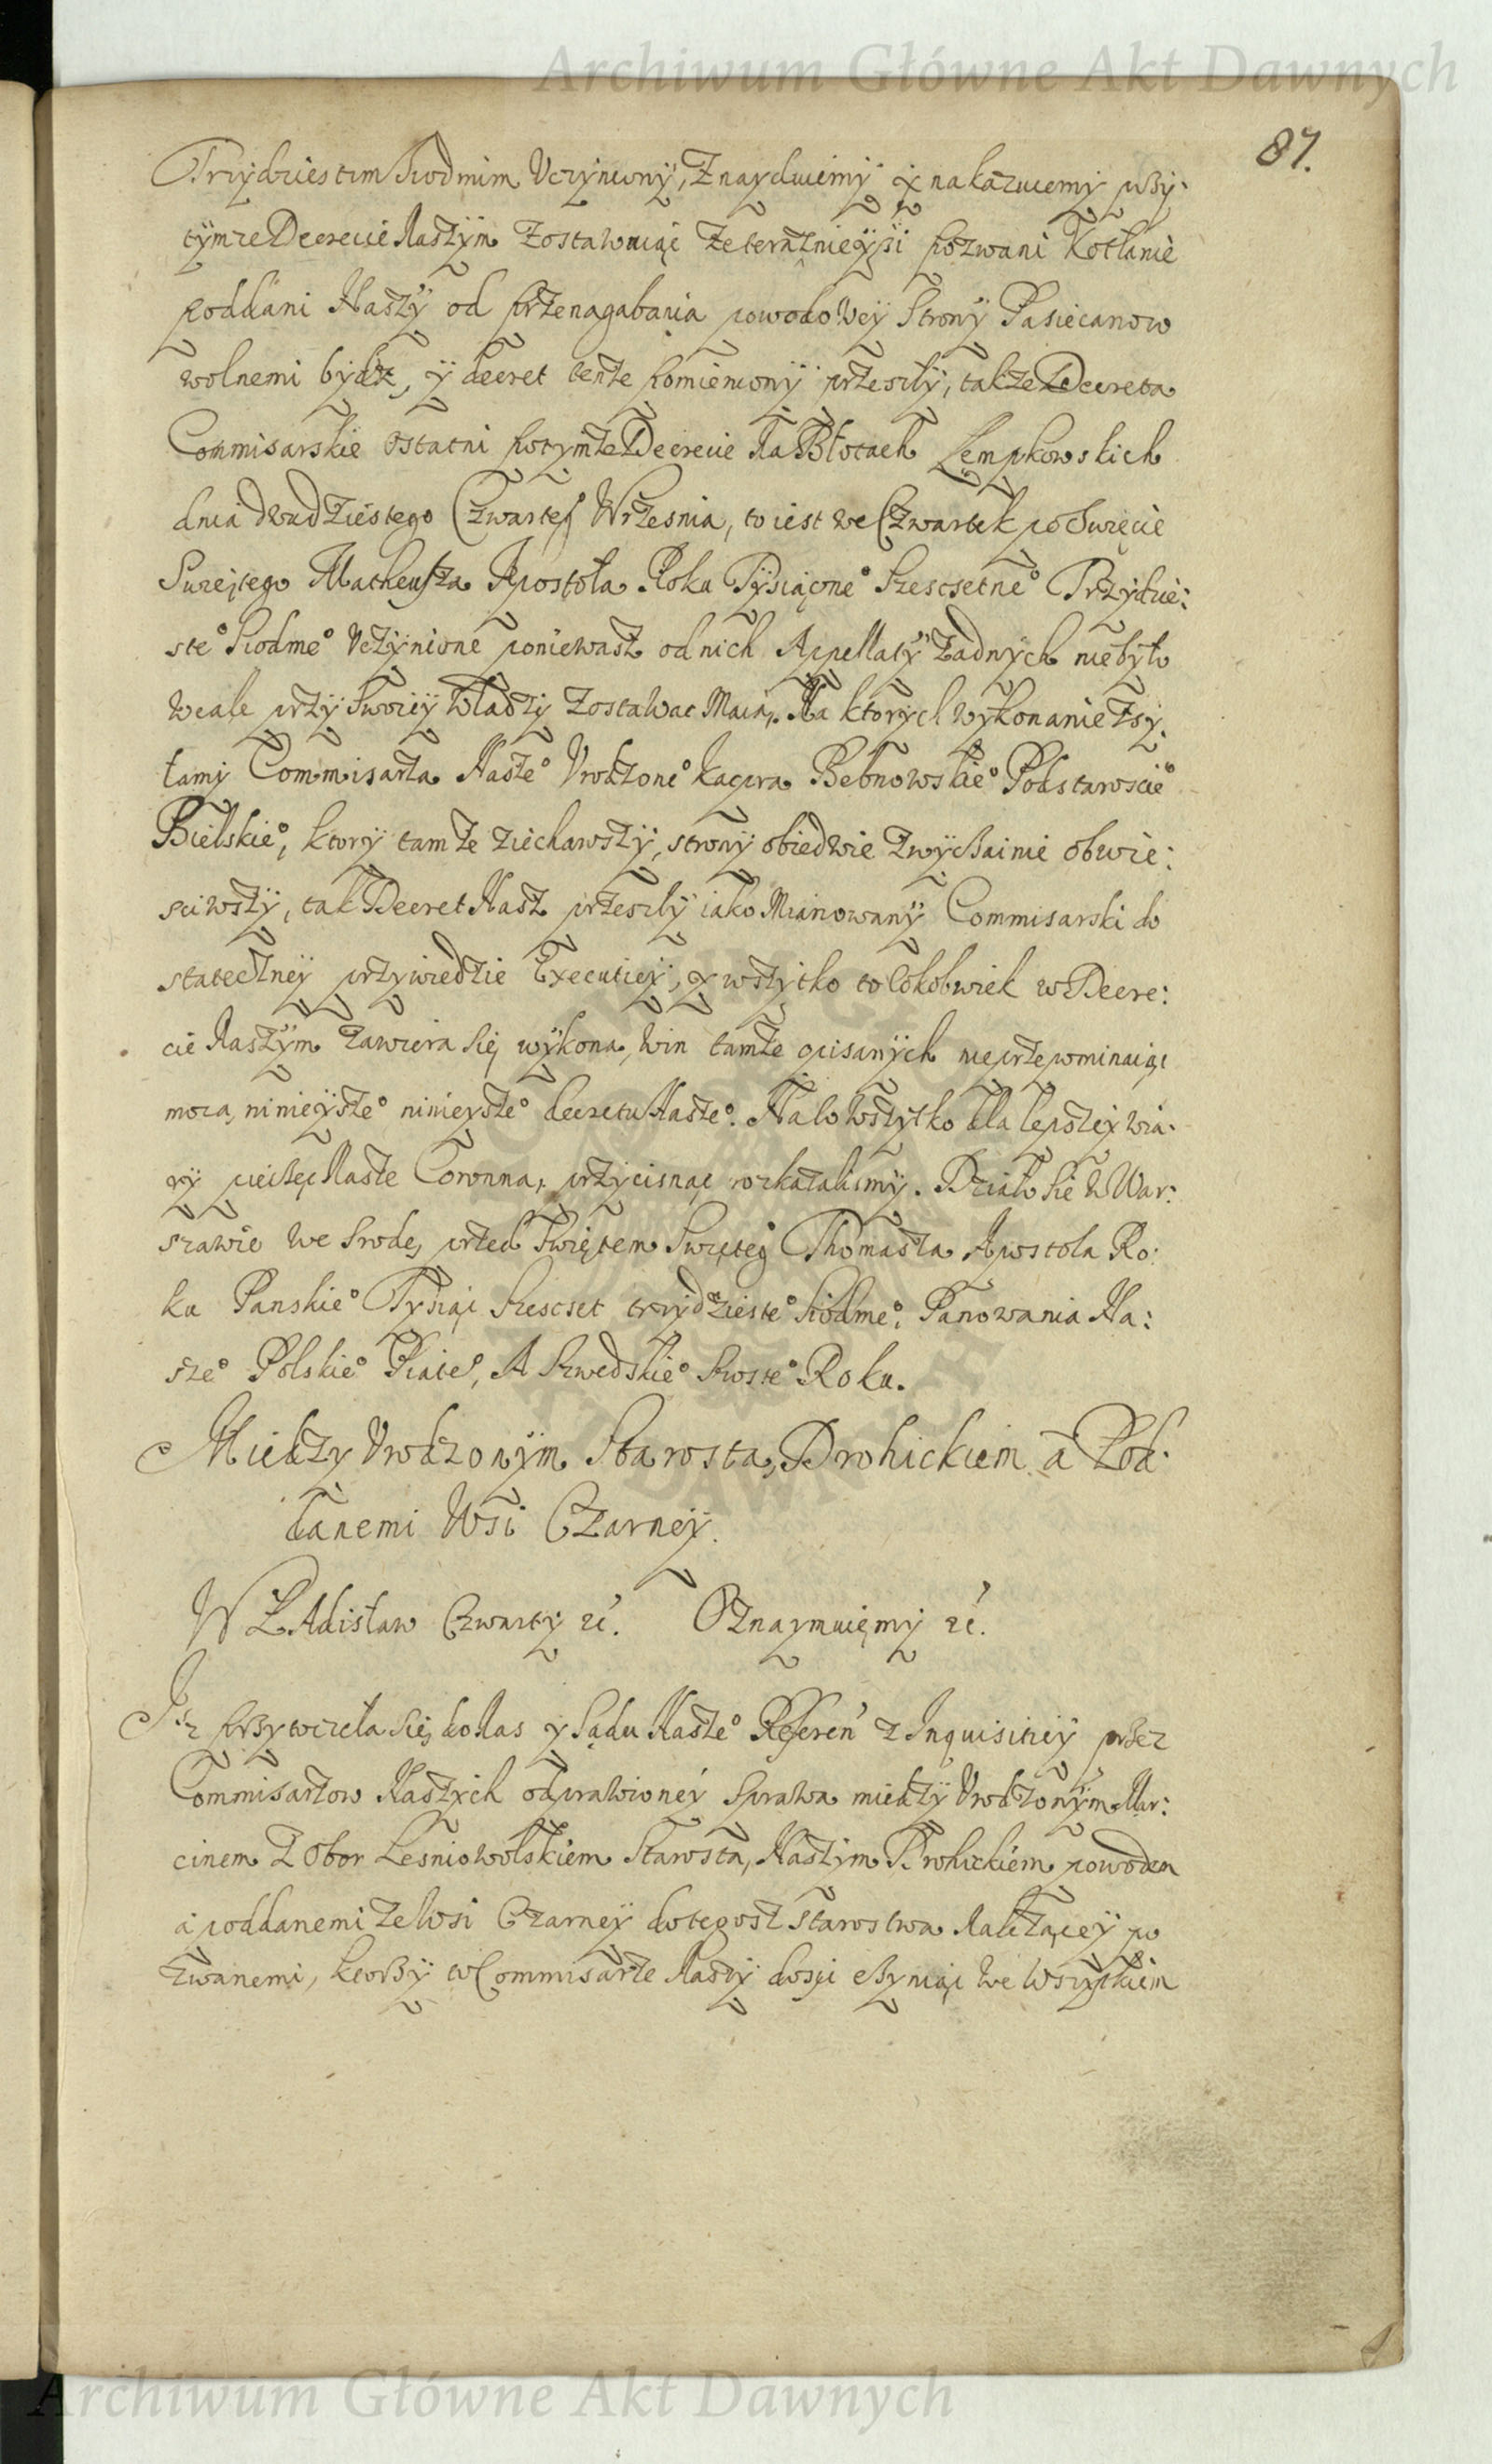 Archiwum Główne Akt Dawnych
87.
Trzydziestim Siodmim Uczyniony, Znayduiemy y nakazuiemy przÿ
tÿmze Decrecie Naszÿm zostawuiąc ze teraznieÿsi pozwani Kotłanie
poddani Naszÿ od przenagabania powodoweÿ Stronÿ Pasiecanow
wolnemi bÿdz, ÿ decret tenze pomienionÿ przeszlÿ, takze Decreta
Commisarskie ostatni po tymze Decrecie Na Błotach Lempkowskich
dnia dwudziestego Czwarteg Wrzesnia, to iest we Czwartek po Swięcie
Swiętego Matheusza Apostoła Roku Tÿsiącne° Szescsetne° Trzydzie:
ste° Siodme° Uczÿnione poniewasz od nich Appellacÿ zadnÿch niebÿło
wcale przÿ swoieÿ władzÿ zostawac Maią. Na ktorych wykonanie zsy:
łamy Commisarza Nasze° Urodzone° Kacpra Bebnowskie° Podstaroscie°
Bielskie°, ktorÿ tamze ziechawszÿ, stronÿ obiedwie zwÿczainie obwie:
sciwszÿ, tak Decret Nasz przeszlÿ iako Mianowanÿ Commisarski do
statecznеÿ przywiedzie Executieÿ, y wszytko to cokolwiek w Decre:
cie Naszÿm zawiera się wÿkona, win tamze opisanÿch nieprzepominaiąc
moca, ninieÿsze° ninieysze° decretu Nasze°. Na co wszytko dla lepszey wia:
rÿ pieczęc Nasze Coronna, przÿcisnąc rozkazalismÿ. Działo sie w War:
szawie we Srode, przed Swiętem Swięteg Thomasza Apostola Ro:
ku Panskie° Tÿsiąc Szescset trzydzieste° Siodme°. Panowania Na:
sze° Polskie° Piąte°, A Szwedskie° Szoste° Roku.
Miedzy Urodzonÿm Starosta, Drohickiem a Pod:
danemi Wsi Czarneÿ.
WŁAdisław Czwarty etc. Oznaymuięmÿ etc.
Iz przytoczeła się do Nas y Sądu Nasze° Referen z Inquisitieÿ przez
Commisarzow Naszÿch odprawioneÿ Sprawa miedzÿ Urodzonÿm Mar:
cinem z Obor Lesniowolskiem Starosta, Naszÿm Drohickiem powodem
a poddanemi ze Wsi Czarneÿ do tegosz starostwa Należąceÿ po
zwanemi, ktorzÿ Commisarze Naszÿ dosyc czyniąc we wszystkiem
Archiwum Główne Akt Dawnych